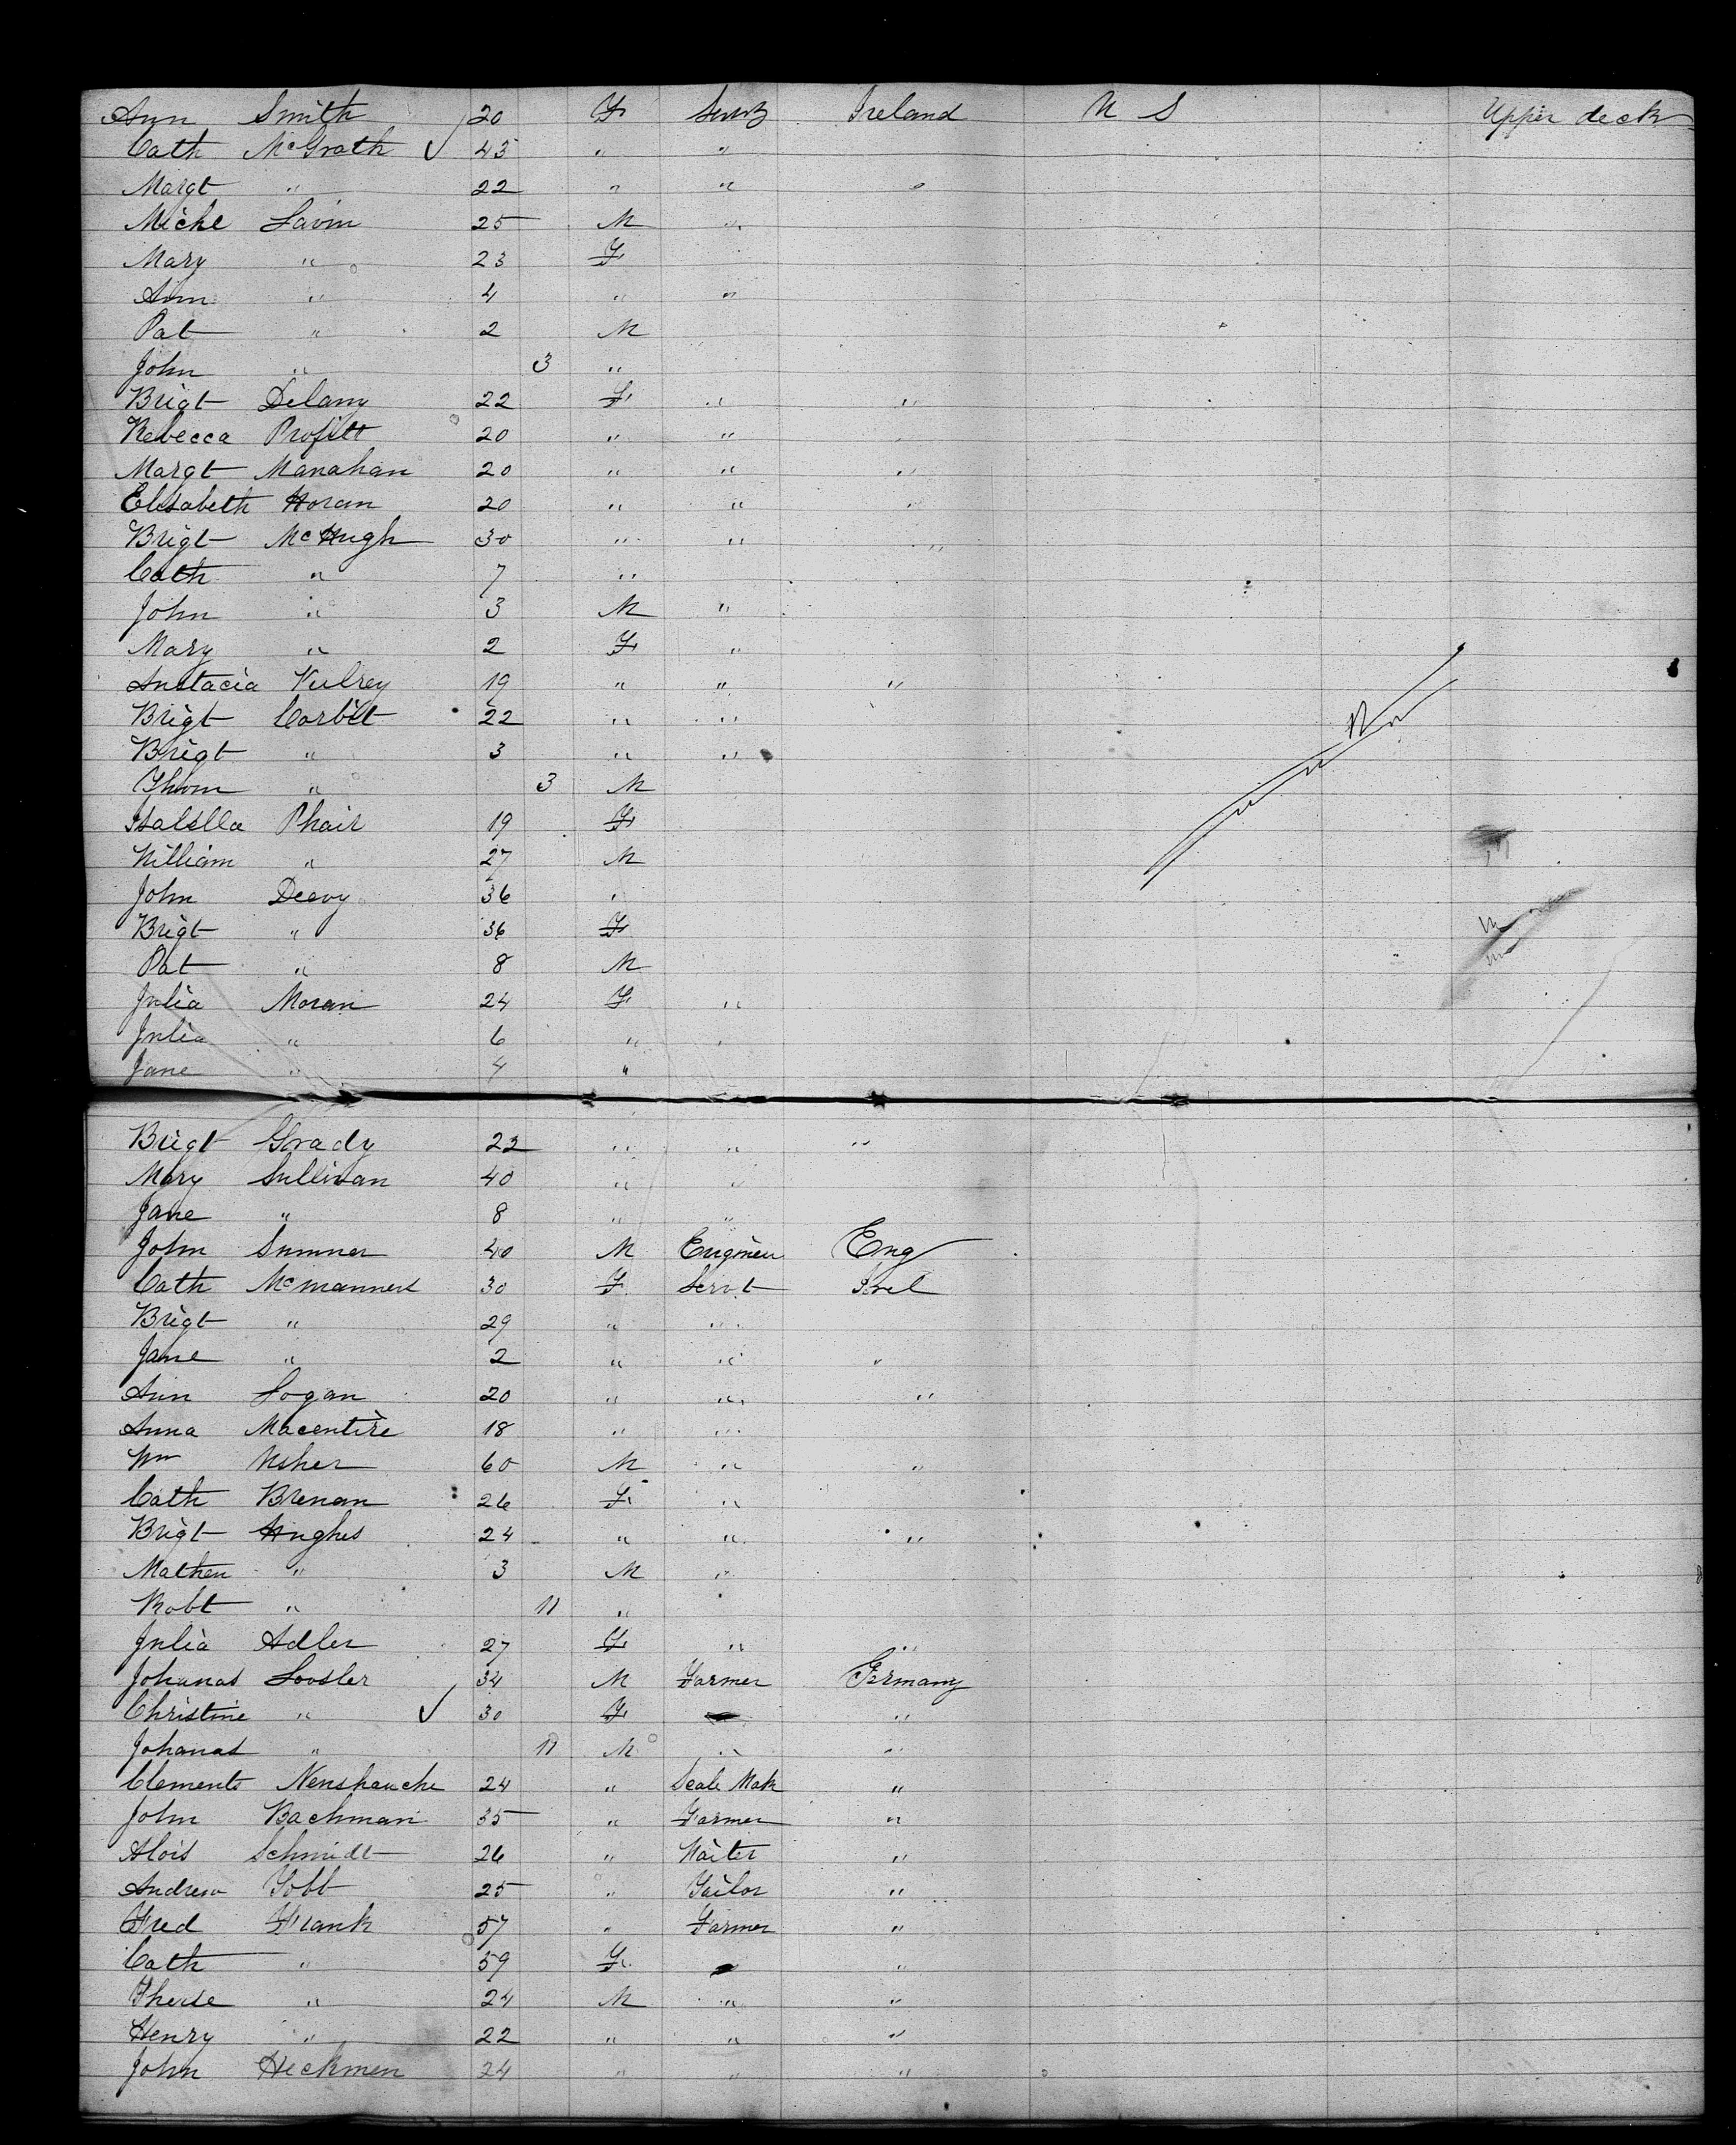 Ann Smith 20 F Servt Ireland U S Upper deck
Cath McGrath ✓ 43 " "
Margt " 22 " " "
Michl Lavin 25 M "
Mary " 23 F
Ann " 4 " "
Pat " 2 M
John " 3 "
Brigt Delany 22 F " "
Rebecca Profitt 20 " "
Margt Manahan 20 " " "
Elisabeth Horan 20 " " "
Brigt McHugh 30 " " "
Cath " 7 "
John " 3 M "
Mary " 2 F "
Anstacia 19 " " "
Brigt Corbit 22 " "
Brigt " 3 " "
Thom " 3 M
Isabella Phair 19 F
William " 27 M
John Deevy 36 "
Brigt " 36 F
Pat " 8 M
Julia Moran 24 F "
Julia " 6 " "
Jane " 4 "
Brigt Grady 22 " " "
Mary Sullivan 40 " "
Jane " 8 " "
John Sumner 40 M Engineer Eng
Cath McManners 30 F Servt Irel
Brigt " 29 " "
Jane " 2 " " "
Ann Logan 20 " " "
Anna Macentire 18 " "
Wm Usher 60 M " "
Cath Brenan 26 F "
Brigt Hughes 24 " " "
Mathew " 3 M "
Robt " 11 "
Julia Adler 27 F " "
Johanas Loosler 34 M Farmer Germany
Christine " ✓ 30 F "
Johanas " 11 M " "
Clements Nenshauche 24 " Scale Mak "
John Bachman 35 " Farmer "
Alois Schmidt 26 " Waiter "
Andrew 25 " Tailor "
Fred Frank 57 " Farmer "
Cath " 59 F "
Therse " 24 M " "
Henry " 22 " " "
John Heckmen 24 " " "